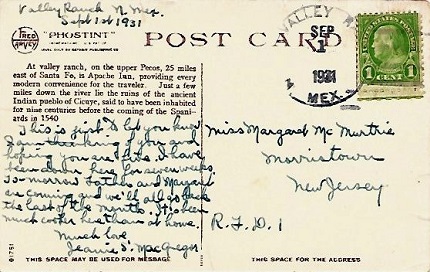 Valley Ranch N. Mex.
Sept 1st 1931
FRED HARVEY
"PHOSTINT"
POST CARD
VALLEY
SEP
1
1931
MEX.
1 CENT 1
At valley ranch, on the upper Pecos, 25 miles
east of Santa Fe, is Apache Inn, providing every
modern convenience for the traveler. Just a few
miles down the river lie the ruins of the ancient
Indian pueblo of Cicuye, said to have been inhabited
for nine centuries before the coming of the Spani-
ards in 1540
This is just to let you know
I am thinking of you and
hoping you are fine. I have
been down here for seven weeks.
To-morrow Father and Margaret
are coming and we'll all go back
the last of the month. It's been
much cooler here than at home.
Much love
Jeanie S. MacGregor
Miss Margaret Mc Murtrie
Morristown
New Jersey
R.F.D. 1
THIS SPACE MAY BE USED FOR MESSAGE
THIS SPACE FOR THE ADDRESS